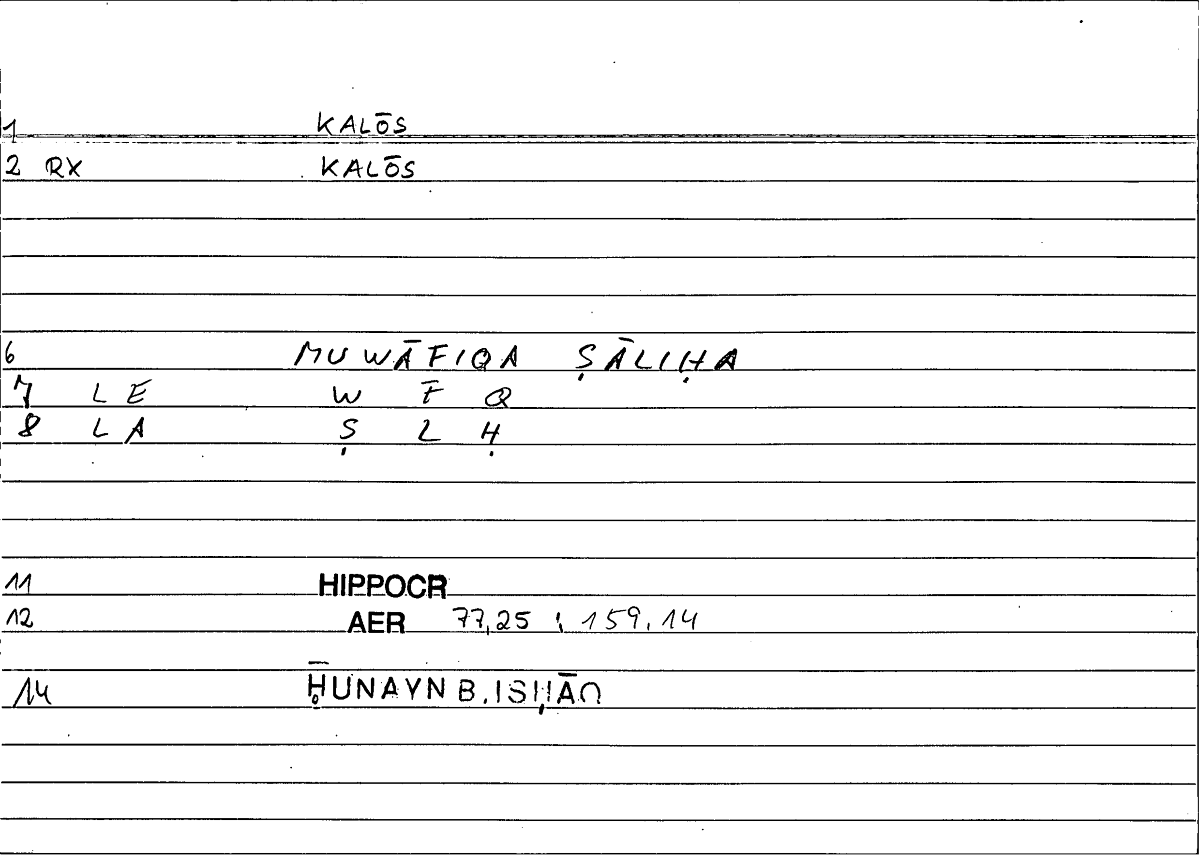 1 KALŌS
2 RX KALŌS
6 MUWĀFIQA ṢĀLIḤA
7 LE W F Q
8 LA Ṣ L Ḥ
11 HIPPOCR
12 AER 77,25 ; 159,14
14 ḤUNAYN B. ISḤĀQ